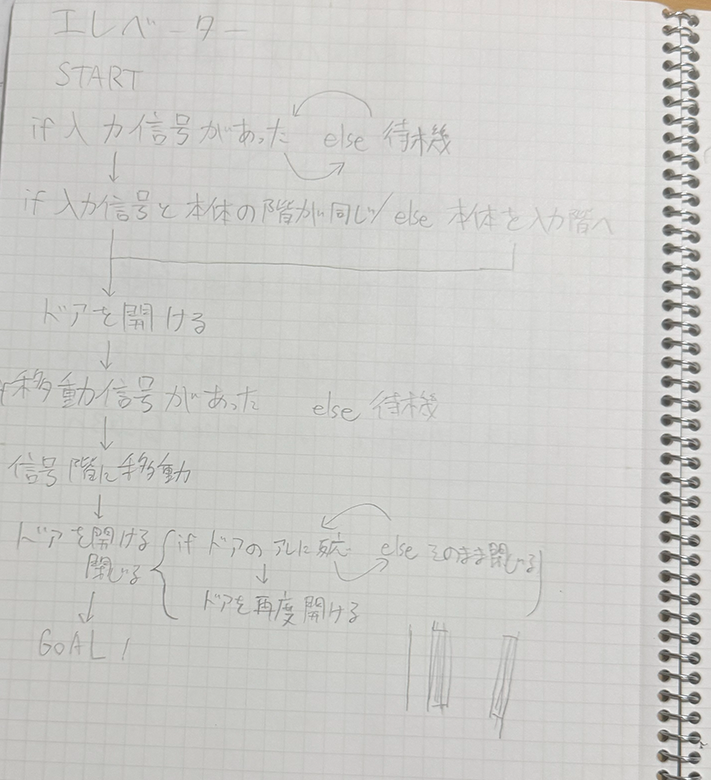 エレベーター
START
if 入力信号があった else 待機
if 入力信号と本体の階が同じ/ else 本体を入力階へ
ドアを開ける
移動信号があった else 待機
信号階に移動
ドアを開ける { if ドアのアレに反応 else そのまま閉じる
閉じる
ドアを再度開ける
GOAL!